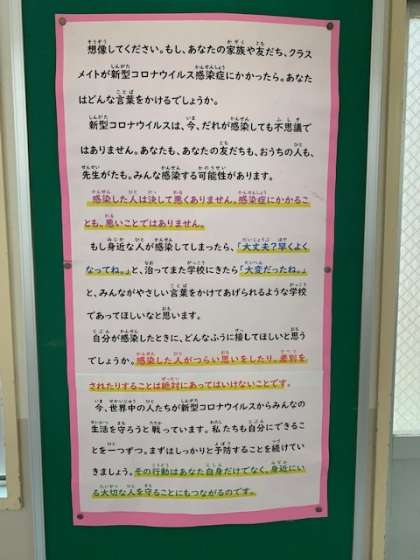 想像してください。もし、あなたの家族や友だち、クラス
メイトが新型コロナウイルス感染症にかかったら。あなた
はどんな言葉をかけるでしょうか。
新型コロナウイルスは、今、だれが感染しても不思議で
はありません。あなたも、あなたの友だちも、おうちの人も、
先生がたも。みんな感染する可能性があります。
感染した人は決して悪くありません。感染症にかかるこ
とも、悪いことではありません。
もし身近な人が感染してしまったら、「大丈夫？早くよく
なってね。」と、治ってまた学校にきたら「大変だったね。」
と、みんながやさしい言葉をかけてあげられるような学校
であってほしいなと思います。
自分が感染したときに、どんなふうに接してほしいと思う
でしょうか。感染した人がつらい思いをしたり、差別を
されたりすることは絶対にあってはいけないことです。
今、世界中の人たちが新型コロナウイルスからみんなの
生活を守ろうと戦っています。私たちも自分にできるこ
とを一つずつ。まずはしっかりと予防することを続けてい
きましょう。その行動はあなた自身だけでなく、身近にい
る大切な人を守ることにもつながるのです。